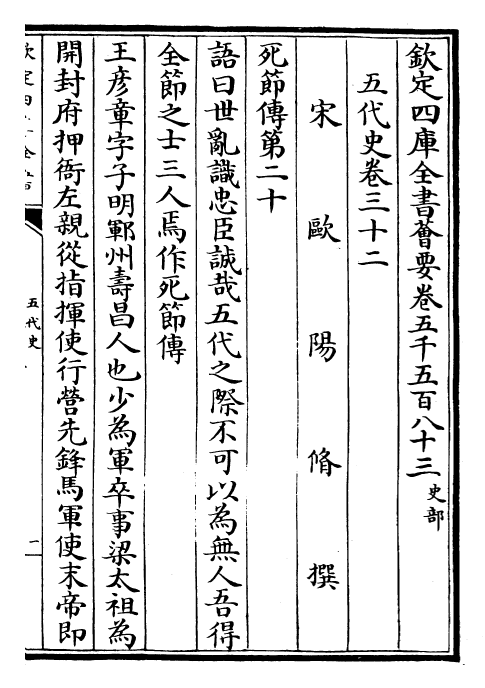 欽定四庫全書薈要卷五千五百八十三 史部
五代史卷三十二
宋 歐 陽 脩 撰
死節傳第二十
語曰世亂識忠臣誠哉五代之際不可以為無人吾得
全節之士三人焉作死節傳
王彥章字子明鄆州壽昌人也少為軍卒事梁太祖為
開封府押衙左親從指揮使行營先鋒馬軍使末帝即
五代史